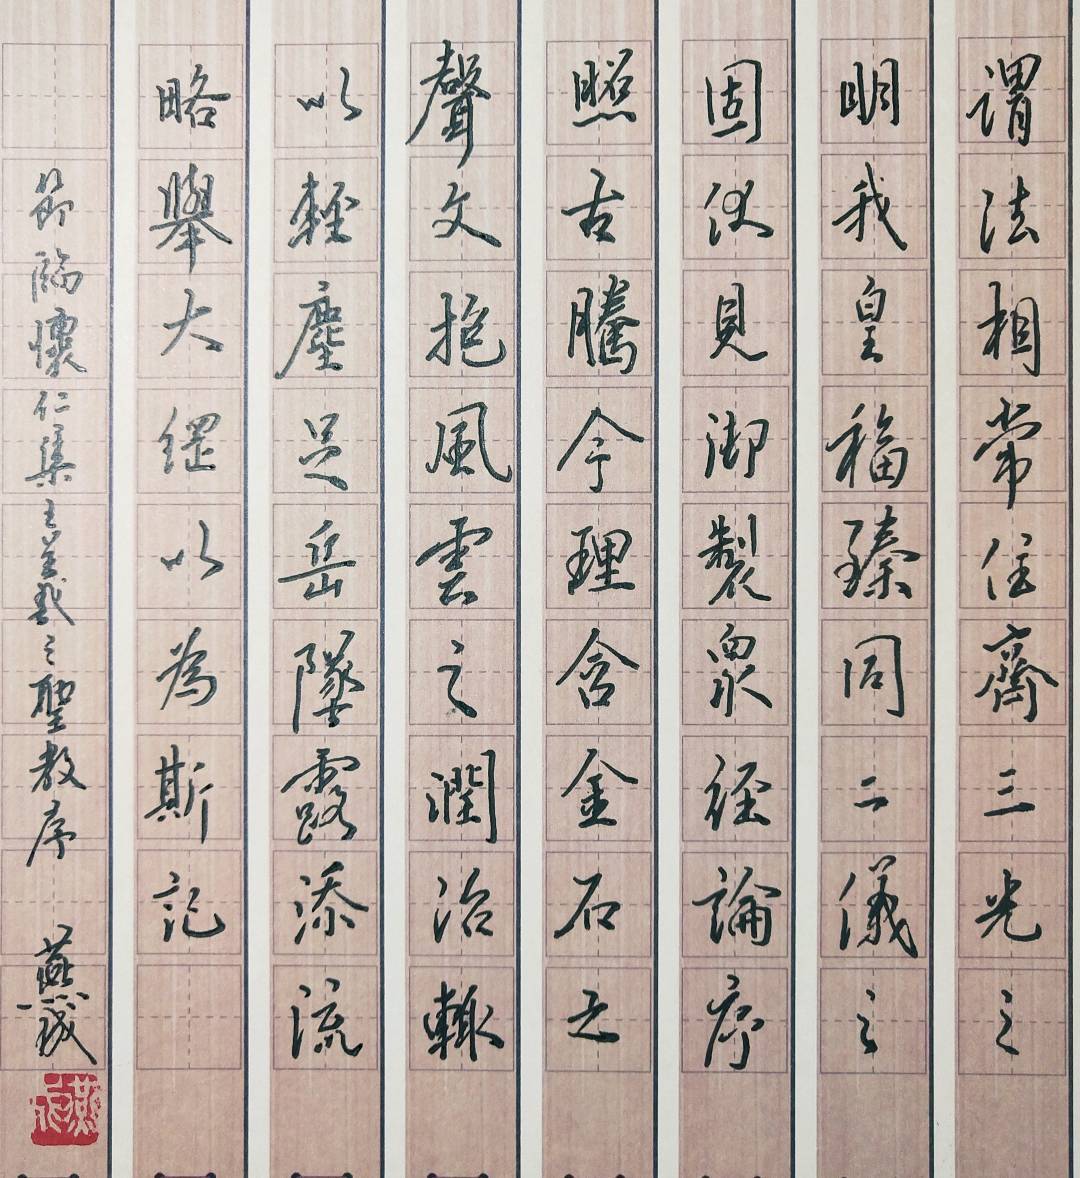 謂法相常住齊三光之
明我皇福臻同二儀之
固伏見御製眾經論序
照古騰今理含金石之
聲文抱風雲之潤治輒
以輕塵足岳墜露添流
略舉大綱以為斯記
節臨懷仁集王羲之聖教序 燕